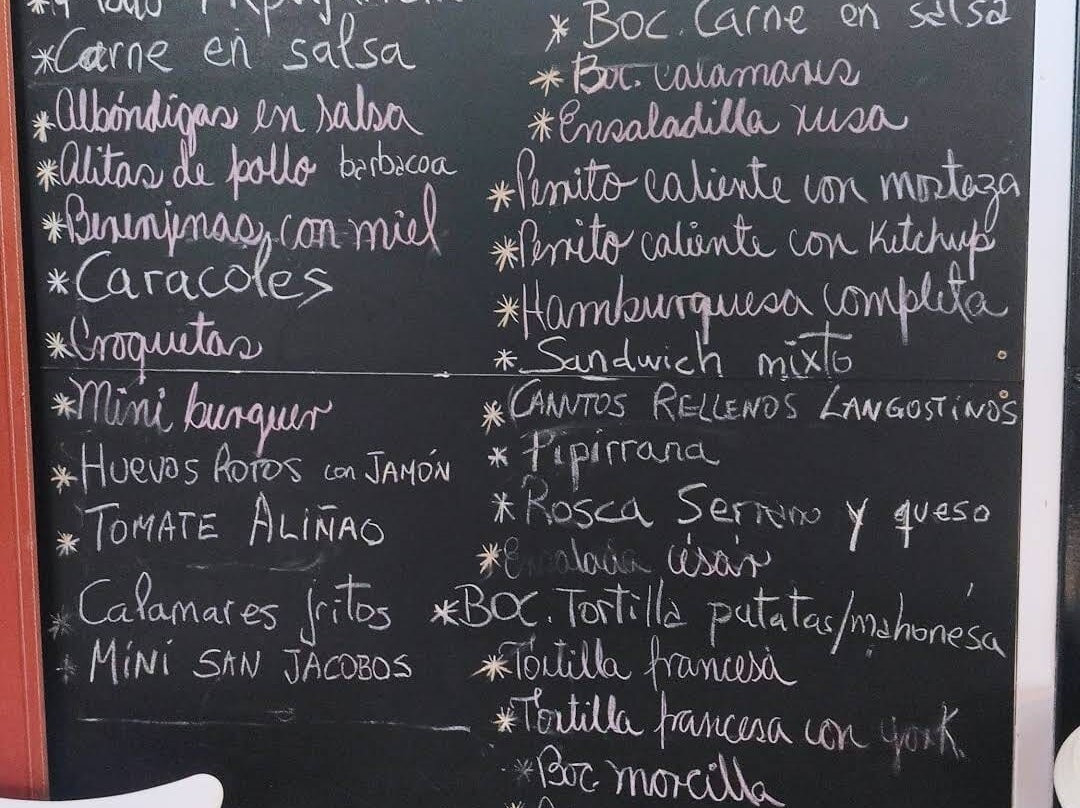 * Carne en salsa
* Albóndigas en salsa
* Alitas de pollo barbacoa
* Berenjenas con miel
* Caracoles
* Croquetas
* Mini burguer
* HUEVOS ROTOS con JAMÓN
* TOMATE ALIÑAO
* Calamares fritos
* MiNi SAN JACOBOS
* Boc. Carne en salsa
* Boc. calamares
* Ensaladilla rusa
* Perrito caliente con mostaza
* Perrito caliente con Ketchup
* Hamburguesa completa
* Sandwich mixto
* CANUTOS RELLENOS LANGOSTINOS
* Pipirrana
* Rosca Serrano y queso
* Ensalada césar
* BOC. Tortilla patatas/mahonesa
* Tortilla francesa
* Tortilla francesa con york
* Boc. morcilla